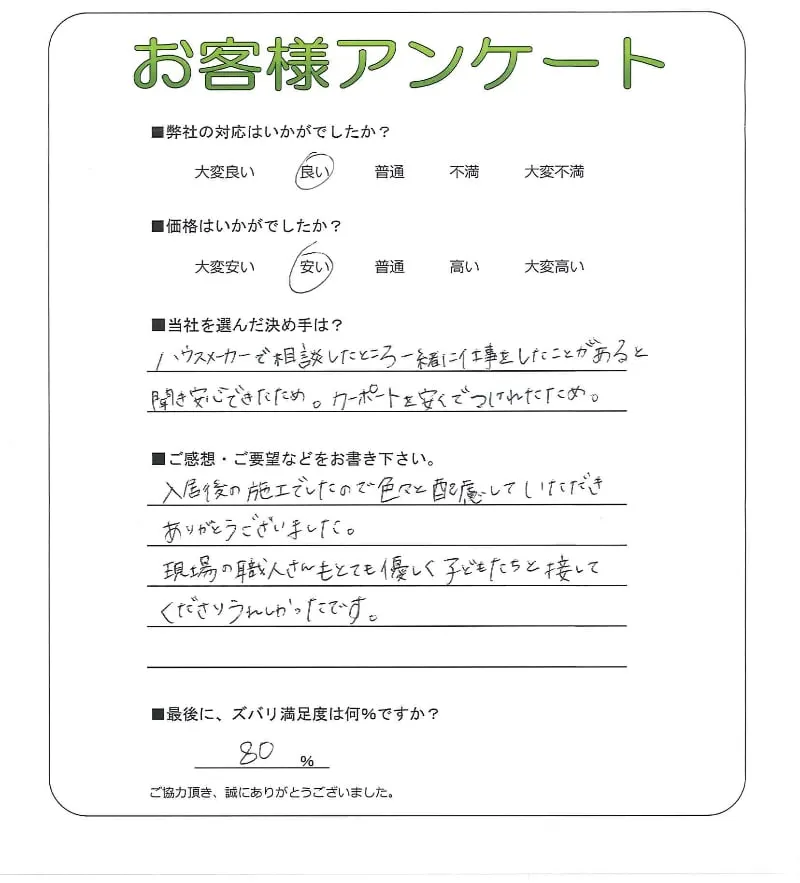 お客様アンケート
■弊社の対応はいかがでしたか？
大変良い 良い 普通 不満 大変不満
■価格はいかがでしたか？
大変安い 安い 普通 高い 大変高い
■当社を選んだ決め手は？
ハウスメーカーで相談したところ一緒に仕事をしたことがあると
聞き安心できたため。カーポートを安くでつけれたため。
■ご感想・ご要望などをお書き下さい。
入居後の施工でしたので色々と配慮していただき
ありがとうございました。
現場の職人さんもとても優しく子どもたちと接して
くださりうれしかったです。
■最後に、ズバリ満足度は何％ですか？
80 %
ご協力頂き、誠にありがとうございました。